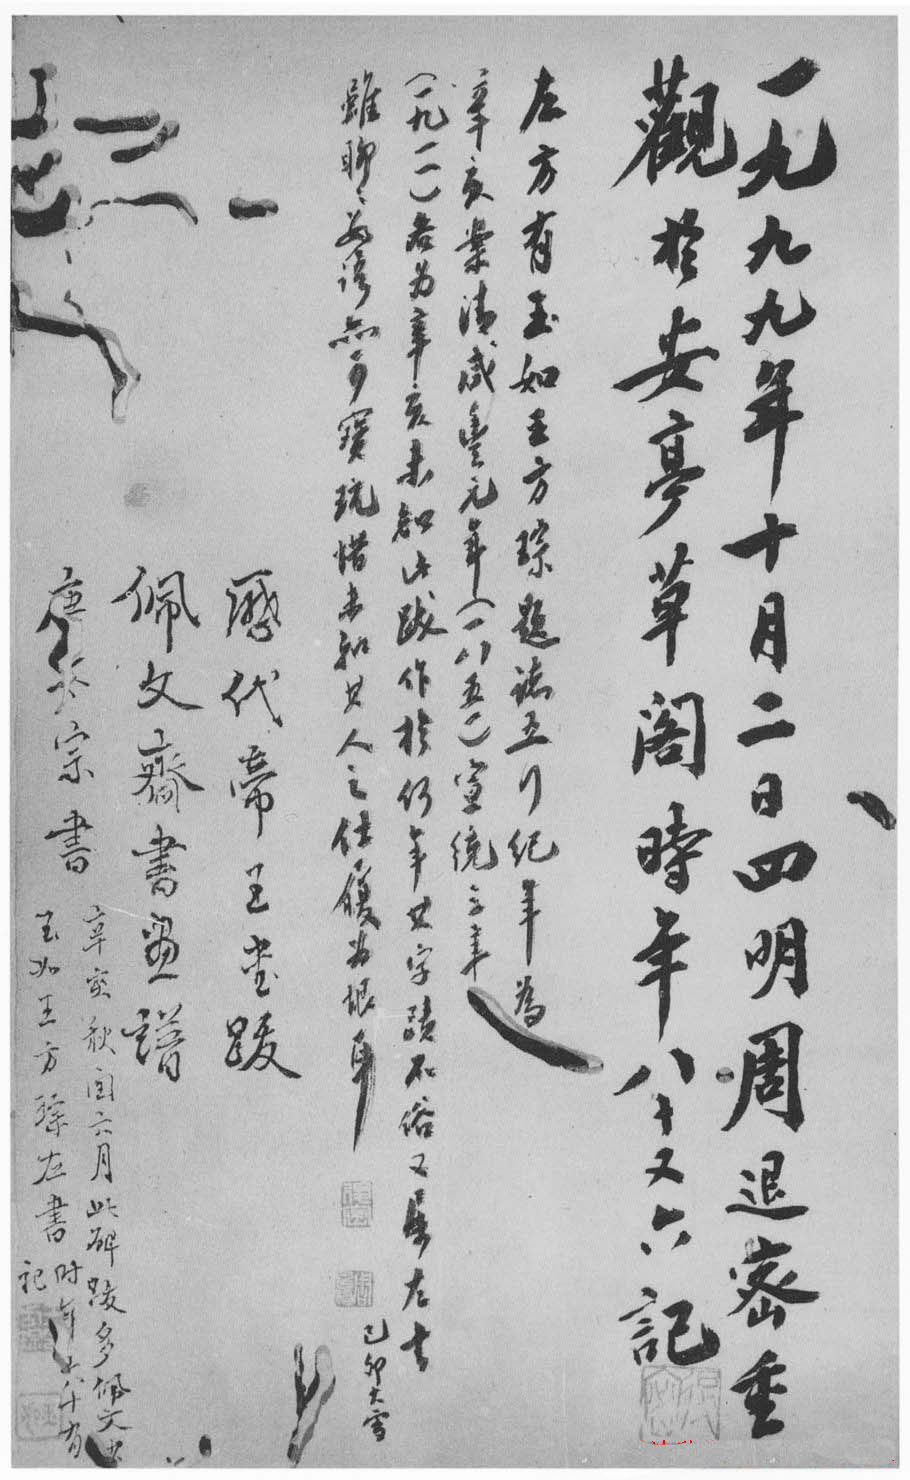 一九九九年十月二日四明周退密重
觀於安亭草閣時年八十又六記
左方有玉如王方琮題誌五行紀年為
辛亥案清咸豐元年(一八五一)宣統三年
(一九一一)各为辛亥未知此跋作於何年其字蹟不俗又屬左書
雖聊〻數語亦可寶玩惜未知其人之仕履为恨耳
己卯大雪
歷代帝王書跋
佩文齋書畫譜
唐太宗書
辛亥秋閏六月此碑跋多佩文
玉如王方琮左書時年六十有
記